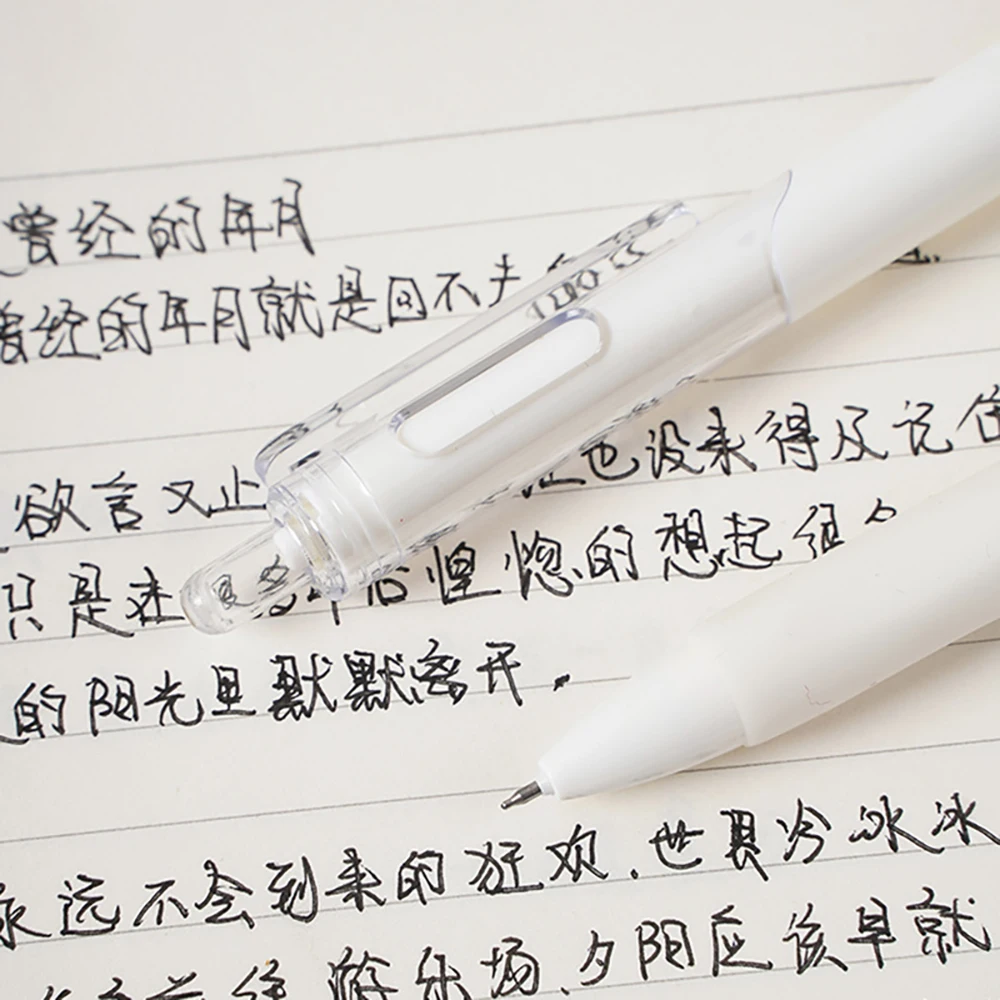 曾经的年月
曾经的年月就是回不去
欲言又止 也没来得及记住
只是在 恍惚的想起
的阳光里默默离开.
永远不会到来的狂欢.世界冷冰冰
游乐场.夕阳应该早就